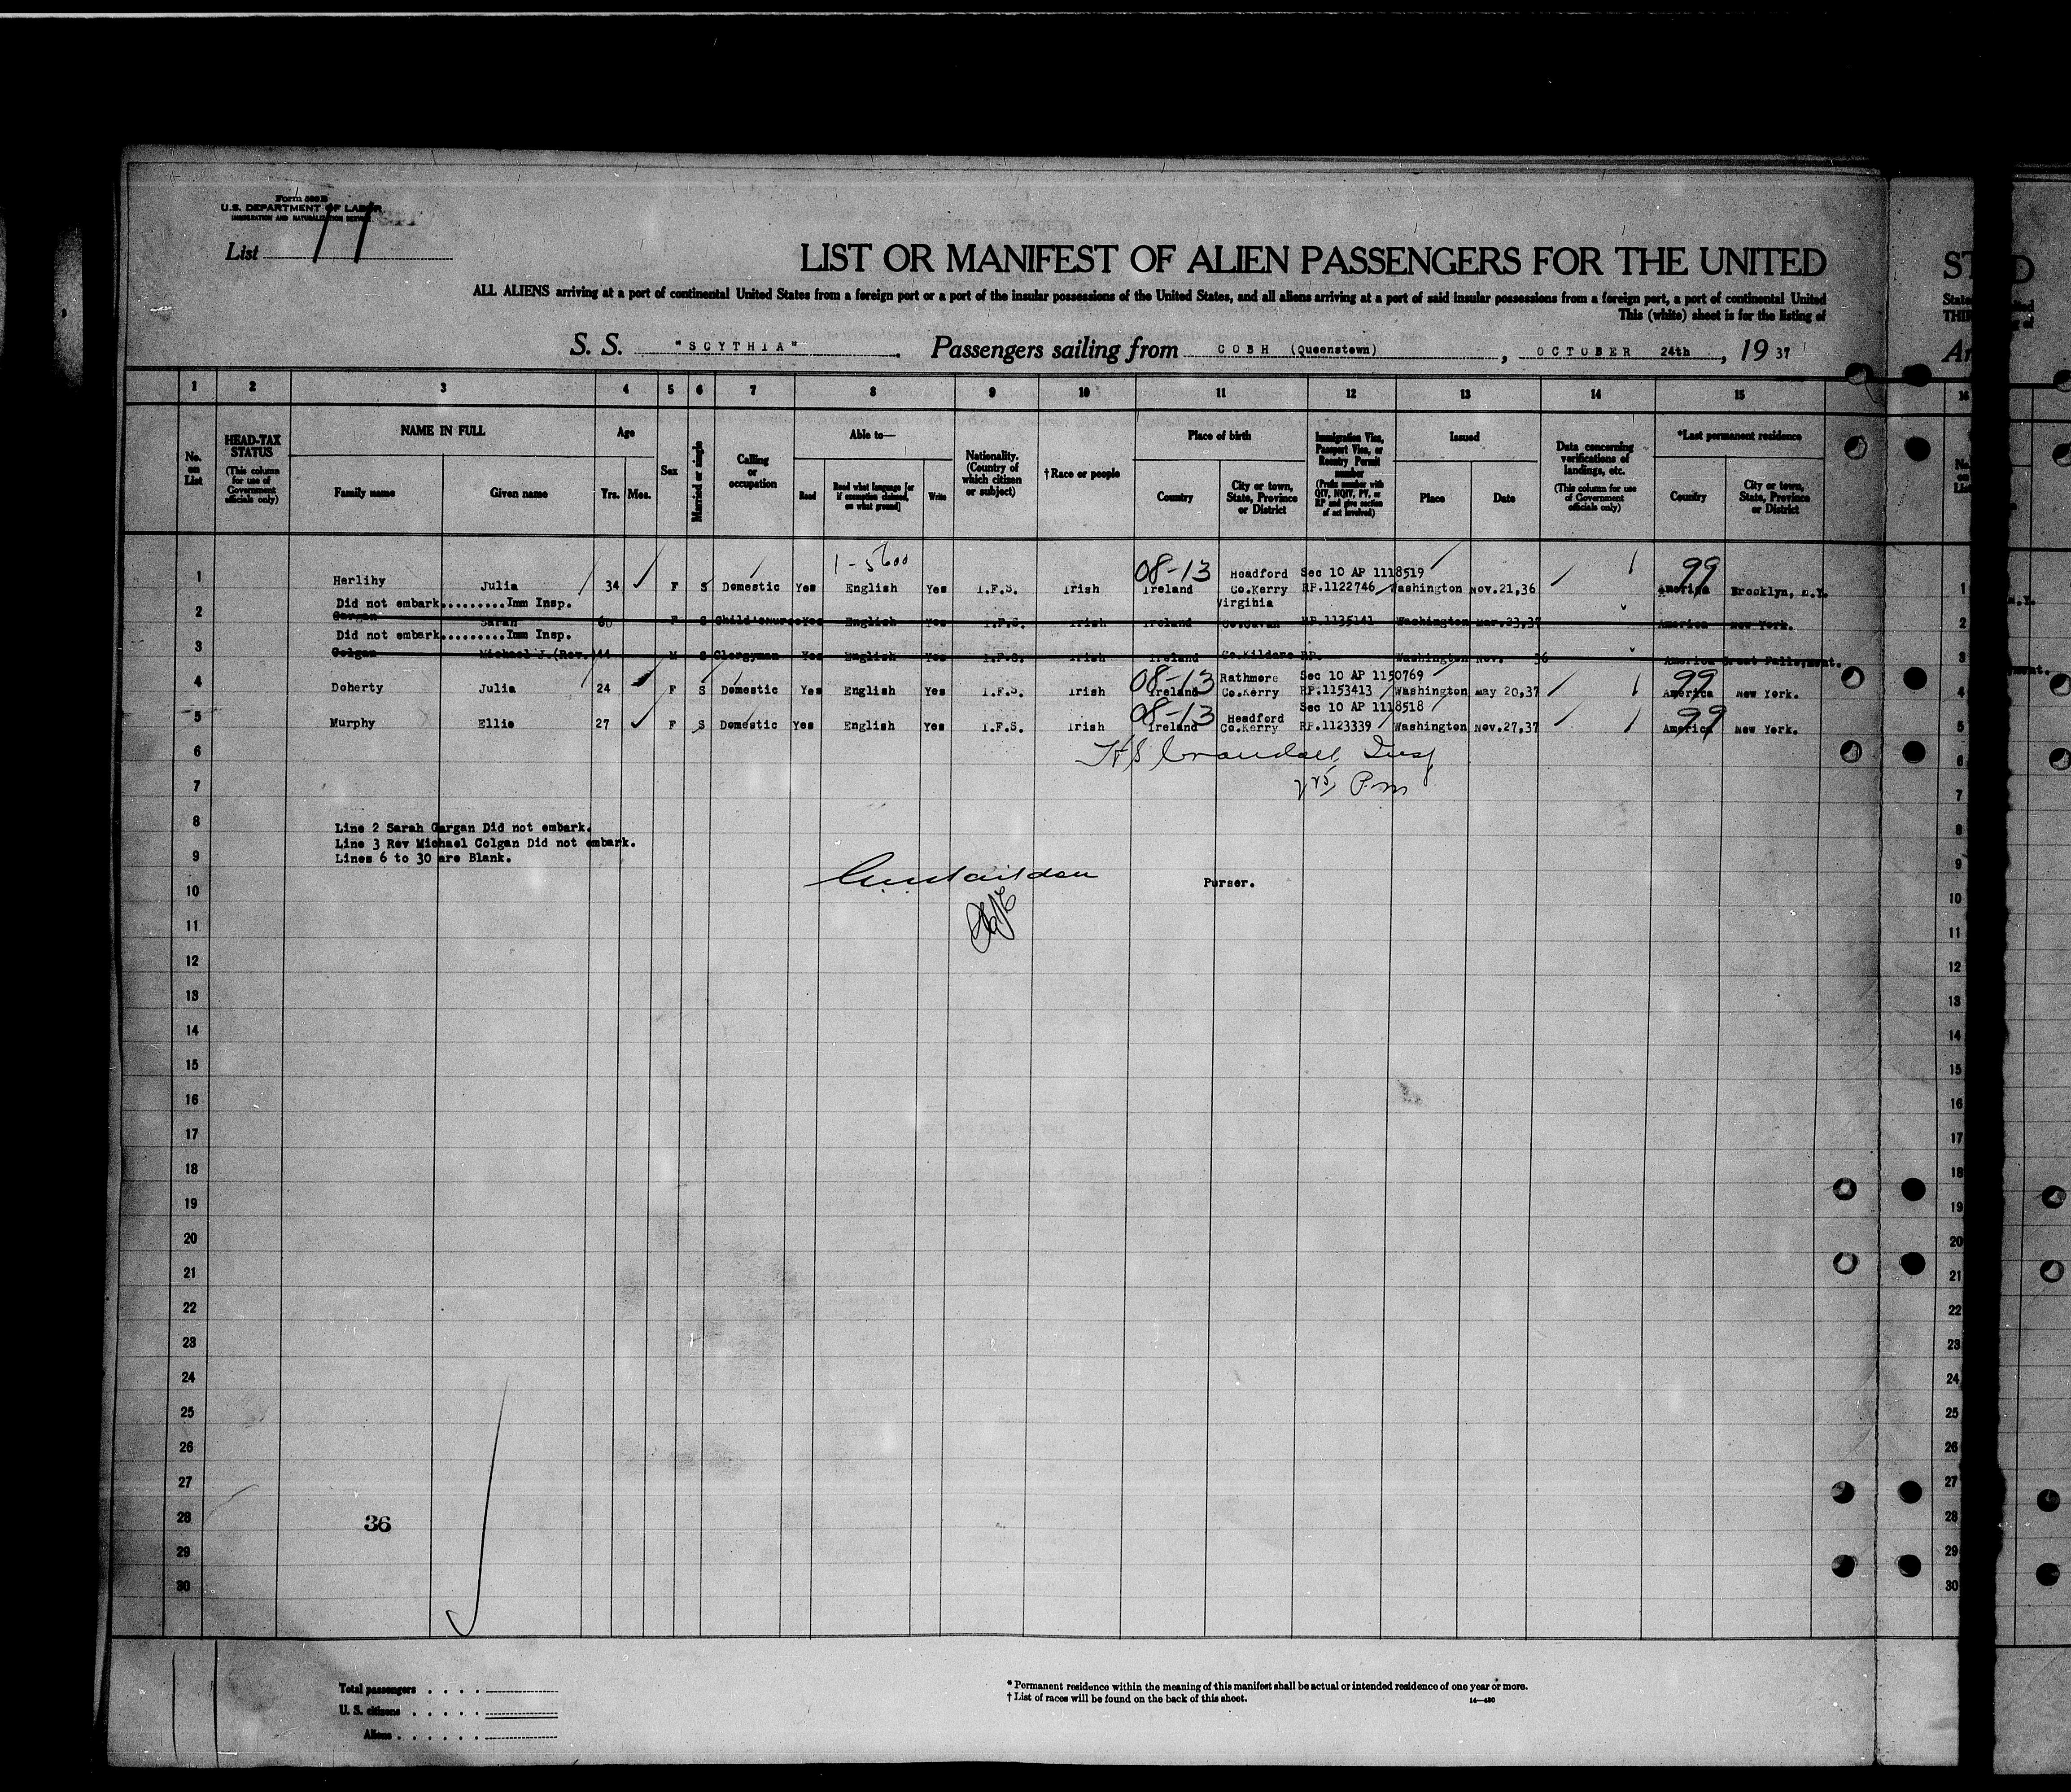 Form 500 B
U.S. DEPARTMENT OF LABOR
IMMIGRATION AND NATURALIZATION SERVICE
List 11
LIST OR MANIFEST OF ALIEN PASSENGERS FOR THE UNITED
ALL ALIENS arriving at a port of continental United States from a foreign port or a port of the insular possessions of the United States, and all aliens arriving at a port of said insular possessions from a foreign port, a port of continental United
This (white) sheet is for the listing of
S. S. "SCYTHIA". Passengers sailing from COBH (Queenstown), OCTOBER 24th, 1937
1 2 3 4 5 6 7 8 9 10 11 12 13 14 15
No. on List
HEAD-TAX STATUS (This column for use of Government officials only)
NAME IN FULL
Family name Given name
Age
Yrs. Mos.
Sex
Married or single
Calling or occupation
Able to—
Read Read what language [or if exemption claimed, on what ground] Write
Nationality. (Country of which citizen or subject)
†Race or people
Place of birth
Country City or town, State, Province or District
Immigration Visa, Passport Visa, or Reentry Permit number (Prefix number with QIV, NQIV, PV, or RP and give section of act involved)
Issued
Place Date
Data concerning verifications of landings, etc. (This column for use of Government officials only)
*Last permanent residence
Country City or town, State, Province or District
1-5600
08-13 Headford Sec 10 AP 1118519 99
1 Herlihy Julia 34 F S Domestic Yes English Yes I.F.S. Irish Ireland Co.Kerry RP.1122746 Washington Nov.21,36 America Brooklyn, N.Y. 1
Did not embark.........Imm Insp. Virgihia
2 Gargan Sarah 60 F S Child'sNurse Yes English Yes I.F.S. Irish Ireland Co.Cavan RP.1135141 Washington Mar.23,37 America New York. 2
Did not embark.........Imm Insp.
3 Colgan Michael J.(Rev.) 44 M S Clergyman Yes English Yes I.F.S. Irish Ireland Co.Kildare RP. Washington Nov. 36 America Great Falls,Mont. 3
08-13 Rathmore Sec 10 AP 1150769 99
4 Doherty Julia 24 F S Domestic Yes English Yes I.F.S. Irish Ireland Co.Kerry RP.1153413 Washington May 20,37 America New York. 4
08-13 Headford Sec 10 AP 1118518 99
5 Murphy Ellie 27 F S Domestic Yes English Yes I.F.S. Irish Ireland Co.Kerry RP.1123339 Washington Nov.27,37 America New York. 5
6 H S Crandall, Insp 6
7 Pm 7
8 Line 2 Sarah Gargan Did not embark. 8
Line 3 Rev Michael Colgan Did not embark.
9 Lines 6 to 30 are Blank. 9
10 Purser. 10
11 11
12 12
13 13
14 14
15 15
16 16
17 17
18 18
19 19
20 20
21 21
22 22
23 23
24 24
25 25
26 26
27 27
28 36 28
29 29
30 30
Total passengers . . . .
U. S. citizens . . . . .
Aliens . . . . . .
* Permanent residence within the meaning of this manifest shall be actual or intended residence of one year or more.
† List of races will be found on the back of this sheet. 14—430